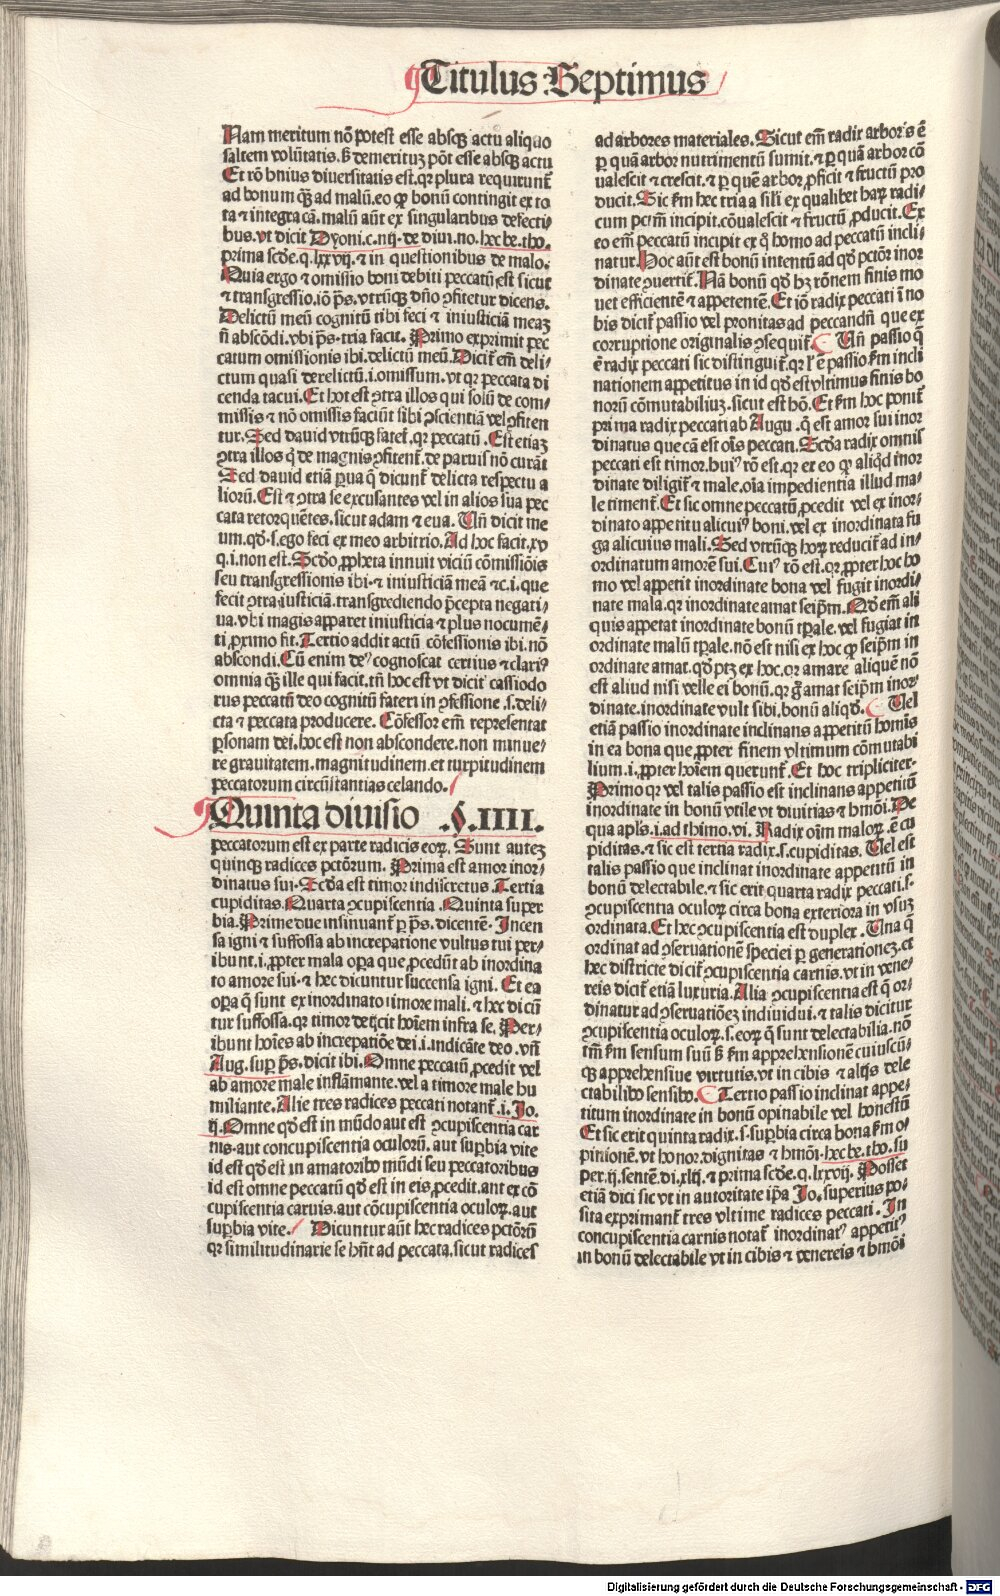 Titulus Septimus
Nam meritum nō potest esse absqȝ actu aliquo
saltem volūtatis. sȝ demeritū pōt esse absqȝ actu
Et rō huius diuersitatis est. qr plura requirunt̄
ad bonum qȝ ad malū. eo ꝙ bonū contingit ex to
ta et integra cā. malū aūt ex singularibus defecti-
bus. vt dicit Dyoni. c. iiij. de diui. no. hec be. tho.
prima scde. q. lxxvij. et in questionibus de malo.
Quia ergo et omissio boni debiti peccatū est sicut
et transgressio. iō ps̄. vtrūqȝ dn̄o ꝯfitetur dicens.
Delictū meū cognitū tibi feci et iniusticiā meaȝ
nō abscōdi. vbi ps̄. tria facit. Primo exprimit pec
catum omissionis ibi. delictū meū. Dicit̄ em̄ deli-
ctum quasi derelictū. i. omissum. vt qr peccata di
cenda tacui. Et hoc est ꝯtra illos qui solū de com-
missis et nō omissis faciūt sibi ꝯscientiā vel ꝯfiten
tur. Sed dauid vtrūqȝ fatet̄. qr peccatū. Est etiaȝ
ꝯtra illos q̄ de magnis ꝯfitent̄. de paruis nō curāt
Sed dauid etiā parua q̄ dicunt̄ delicta respectu a
liorū. Est et ꝯtra se excusantes vel in alios sua pec
cata retorquētes. sicut adam et eua. Un̄ dicit me
um. qd̄. s. ego feci ex meo arbitrio. Ad hoc facit. xv
q. i. non est. Scd̄o ꝓpheta innuit viciū cōmissiōis
seu transgressionis ibi. et iniusticiā meā etc. i. que
fecit ꝯtra iusticiā. transgrediendo p̄cepta negati-
ua. vbi magis apparet iniusticia et plus nocumē-
ti ꝓximo fit. Tertio addit actū cōfessionis ibi. nō
abscondi. Cū enim deꝰ cognoscat certius et clariꝰ
omnia qȝ ille qui facit. tn̄ hoc est vt dicit cassiodo
rus peccatū deo cognitū fateri in ꝯfessione. s. deli-
cta et peccata producere. Cōfessor em̄ representat
ꝑsonam dei. hoc est non abscondere. non minue-
re grauitatem. magnitudinem. et turpitudinem
peccatorum circūstantias celando.
Quinta diuisio .§. IIII.
peccatorum est ex parte radicis eoꝝ. Sunt auteȝ
quinqȝ radices pctōrum. Prima est amor inor-
dinatus sui. Scd̄a est timor indiscretus. Tertia
cupiditas. Quarta ꝯcupiscentia. Quinta super
bia. Prime due insinuant̄ ꝑ ps̄. dicentē. Incen
sa igni et suffossa ab increpatione vultus tui per-
ibunt. i. ꝓpter mala opa que ꝓcedūt ab inordina
to amore sui. et hec dicuntur succensa igni. Et ea
opa q̄ sunt ex inordinato timore mali. et hec dicū
tur suffossa. qr timor deijcit hoīem infra se. Per-
ibunt hoīes ab increpatiōe dei. i. indicāte deo. vn̄
Aug. sup ps̄. dicit ibi. Omne peccatū ꝓcedit vel
ab amore male inflāmante. vel a timore male hu
miliante. Alie tres radices peccati notant̄. i. Jo.
ij. Omne qd̄ est in mūdo aut est ꝯcupiscentia car
nis. aut concupiscentia oculorū. aut supbia vite
id est qd̄ est in amatoribꝰ mūdi seu peccatoribus
id est omne peccatū qd̄ est in eis ꝓcedit. aut ex cō
cupiscentia carnis. aut cōcupiscentia oculoꝝ. aut
supbia vite. Dicuntur aūt hec radices pctōrū
qr similitudinarie se hn̄t ad peccata. sicut radices
ad arbores materiales. Sicut em̄ radix arboris ē
ꝑ quā arbor nutrimentū sumit. et ꝑ quā arbor cō
ualescit et crescit. et ꝑ quē arbor ꝓficit et fructū pro
ducit. Sic sm̄ hec tria a sili ex qualibet haꝝ radi-
cum pctm̄ incipit. cōualescit et fructū ꝓducit. Ex
eo em̄ peccatū incipit ex q̄ homo ad peccatū incli-
natur. Hoc aūt est bonū intentū ad qd̄ pctōr inor
dinate ꝯuertit̄. Nā bonū qd̄ hȝ rōnem finis mo
uet efficientē et appetentē. Et iō radix peccati ī no
bis dicit̄ passio vel pronitas ad peccandū que ex
corruptione originalis ꝯsequit̄. Un̄ passio q̄
ē radix peccati sic distinguit̄. qr l' ē passio sm̄ incli
nationem appetitus in id qd̄ est vltimus finis bo
norū cōmutabiliuȝ. sicut est hō. Et sm̄ hoc ponit̄
prima radix peccati ab Augu. q̄ est amor sui inor
dinatus que cā est oīs peccati. Scd̄a radix omnis
peccati est timor. huiꝰ rō est. qr et eo ꝙ aliqd̄ inor
dinate diligit̄ et male. oīa impedientia illud ma-
le timent̄. Et sic omne peccatū ꝓcedit vel ex inor-
dinato appetitu alicuiꝰ boni. vel ex inordinata fu
ga alicuius mali. Sed vtrūqȝ hoꝝ reducit̄ ad in-
ordinatum amorē sui. Cuiꝰ rō est. qr ꝓpter hoc ho
mo vel appetit inordinate bona vel fugit inordi-
nate mala. qr inordinate amat seip̄m. Qd̄ em̄ ali
quis appetat inordinate bonū tp̄ale. vel fugiat in
ordinate malū tp̄ale. nō est nisi ex hoc ꝙ seip̄m in
ordinate amat. qd̄ ptȝ ex hoc. qr amare aliquē nō
est aliud nisi velle ei bonū. qr g̊ amat seip̄m inor-
dinate. inordinate vult sibi. bonū aliqd̄. Uel
etiā passio inordinate inclinans appetitū homīs
in ea bona que ꝓpter finem vltimum cōmutabi
lium. i. ꝓpter hoīem querunt̄. Et hoc tripliciter.
Primo qr vel talis passio est inclinans appetitū
inordinate in bonū vtile vt diuitias et hmōi. De
qua apl's. i. ad thimo. vi. Radix oīm maloꝝ ē cu
piditas. et sic est tertia radix. s. cupiditas. Uel est
talis passio que inclinat inordinate appetitū in
bonū delectabile. et sic erit quarta radix peccati. s.
ꝯcupiscentia oculoꝝ circa bona exteriora in vsuȝ
ordinata. Et hec ꝯcupiscentia est duplex. Una q̄
ordinat ad ꝯseruationē speciei ꝑ generationeȝ. et
hec districte dicit̄ ꝯcupiscentia carnis. vt in vene-
reis dicit̄ etiā luxuria. Alia ꝯcupiscentia est q̄ or-
dinatur ad ꝯseruatiōeȝ indiuidui. et talis dicitur
ꝯcupiscentia oculoꝝ. s. eoꝝ q̄ sunt delectabilia. nō
tm̄ sm̄ sensum suū sȝ sm̄ apprehensionē cuiuscū-
qȝ apprehensiue virtutis. vt in cibis et alijs dele
ctabilibꝰ sensibꝰ. Tertio passio inclinat appe-
titum inordinate in bonū opinabile vel honestū
Et sic erit quinta radix. s. supbia circa bona sm̄ o-
pinionē. vt honor. dignitas et hmōi. hec be. tho. su
per. ij. sentē. di. xlij. et prima scde. q. lxxvij. Posset
etiā dici sic vt in autoritate ip̄a Jo. superius po-
sita exprimant̄ tres vltime radices peccati. In
concupiscentia carnis notat̄ inordinatꝰ appetitꝰ
in bonū delectabile vt in cibis et venereis et hmōi
Digitalisierung gefördert durch die Deutsche Forschungsgemeinschaft - DFG